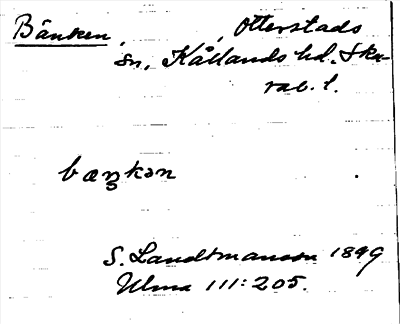 Bänken, , Otterstads
sn, Kållands hd. Ska-
rab. l.
bæŋkən
S. Landtmanson 1899
Ulma 111:205.